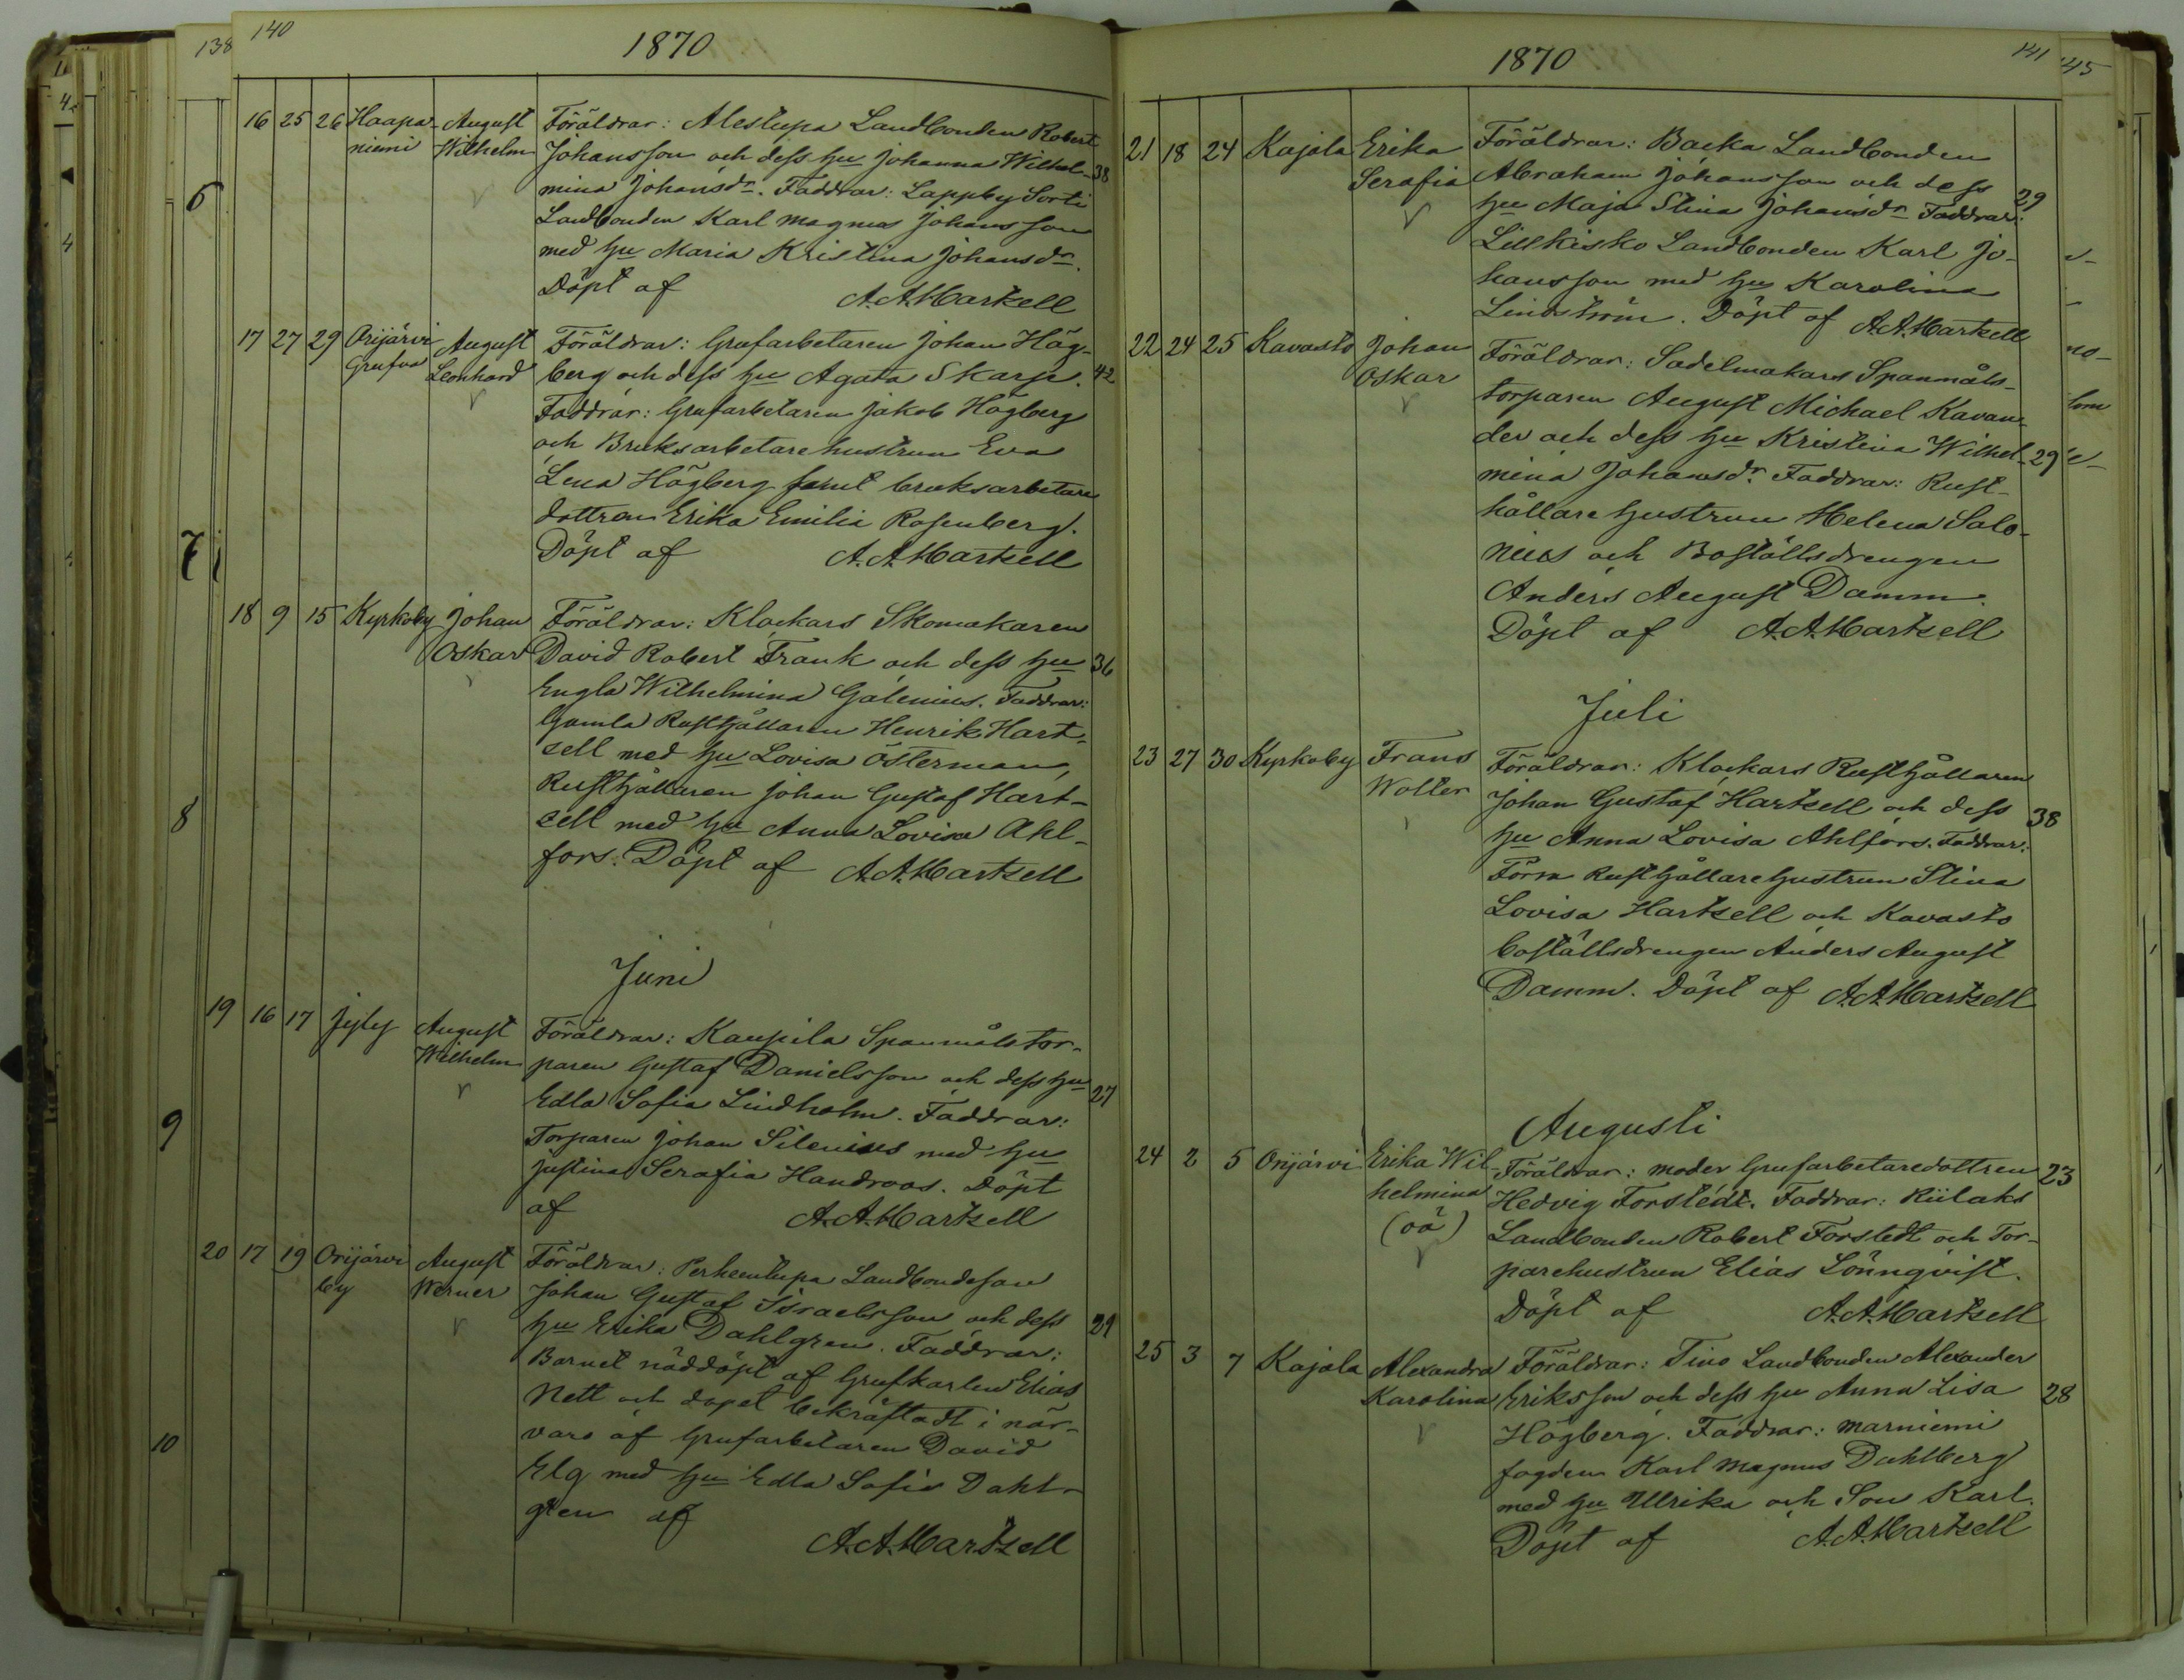 138
140
1870
16 25 26 Haapa- August Föräldrar: Alestupa Landbonden Robert
niemi Wilhelm Johansson och dess hu Johanna Wilhel- 38
mina Johansdr. Faddrar: Lappby Sorti
Landbonden Karl Magnus Johansson
med hu Maria Kristina Johansdr.
Döpt af A.A.Hartzell
17 27 29 Orijärvi August Föräldrar: Grufarbetaren Johan Hög-
Grufva Leonhard berg och dess hu Agata Skarp. 42
Faddrar: Grufarbetaren Jakob Högberg
och Bruksarbetarehustrun Eva
Lena Högberg samt bruksarbetare
dottren Erika Emilia Rosenberg.
Döpt af A.A.Hartzell
18 9 15 Kyrkoby Johan Föräldrar: Klockars Skomakaren
Oskar David Robert Frank och dess hu 36
Engla Wilhelmina Galenius. Faddrar:
Gamla Rusthållaren Henrik Hart-
zell med hu Lovisa Österman,
Rusthållaren Johan Gustaf Hart-
zell med hu Anna Lovisa Ahl-
fors. Döpt af A.A.Hartzell
Juni
19 16 17 Jyly August Föräldrar: Kaupila Spanmålstor-
Wilhelm paren Gustaf Danielsson och dess hu 27
Edla Sofia Lindholm. Faddrar:
Torparen Johan Silenius med hu
Justina Serafia Handroos. Döpt
af A.A.Hartzell
20 17 19 Orijärvi August Föräldrar: Perhentupa Landbondeson
by Werner Johan Gustaf Israelsson och dess
hu Erika Dahlgren. Faddrar: 29
Barnet nöddöpt af Grufkarlen Elias
Nett och dopet bekräftadt i när-
varo af Grufarbetaren David
Elg med hu Edla Sofia Dahl-
gren af
A.A.Hartzell
6
7
8
9
10
1870
141
145
21 18 24 Kajala Erika Föräldrar: Backa Landbonden
Serafia Abraham Johansson och dess
hu Maja Stina Johansdr Faddrar: 29
Lillkisko Landbonden Karl Jo-
hansson med hu Karolina
Lindström. Döpt af A.A.Hartzell
22 24 25 Kavasto Johan Föräldrar: Sadelmakars Spanmåls-
Oskar torparen August Michael Kavan-
der och dess hu Kristina Wilhel- 29
mina Johansdr. Faddrar: Rust-
hållare hustrun Helena Salo-
nius och Boställsdrengen
Anders August Damm.
Döpt af A.A.Hartzell
Juli
23 27 30 Kyrkoby Frans Föräldrar: Klockars Rusthållaren
Wolter Johan Gustaf Hartzell och dess 38
hu Anna Lovisa Ahlfors. Faddrar:
Förra Rusthållarehustrun Stina
Lovisa Hartzell och Kavasto
boställsdrengen Anders August
Damm. Döpt af A.A.Hartzell
Augusti
24 2 5 Orijärvi Erika Wil- Föräldrar: moder Grufarbetaredottren 23
helmina Hedvig Forstedt. Faddrar: Kiilaks
(oä) Landbonden Robert Forstedt och Tor-
parehustrun Elias Lönnqvist.
Döpt af A.A.Hartzell
25 3 7 Kajala Alexandra Föräldrar: Tino Landbonden Alexander
Karolina Eriksson och dess hu Anna Lisa 28
Högberg. Faddrar: Marniemi
fogden Karl Magnus Dahlberg
med hu Ulrika och Son Karl.
Döpt af A.A.Hartzell